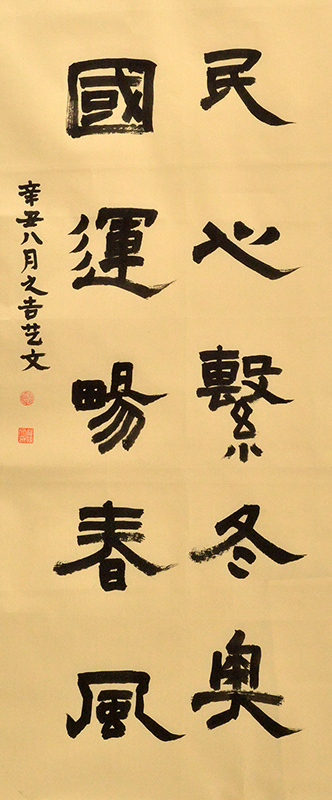 民心繫冬奥
國運暢春風
辛丑八月之吉艺文